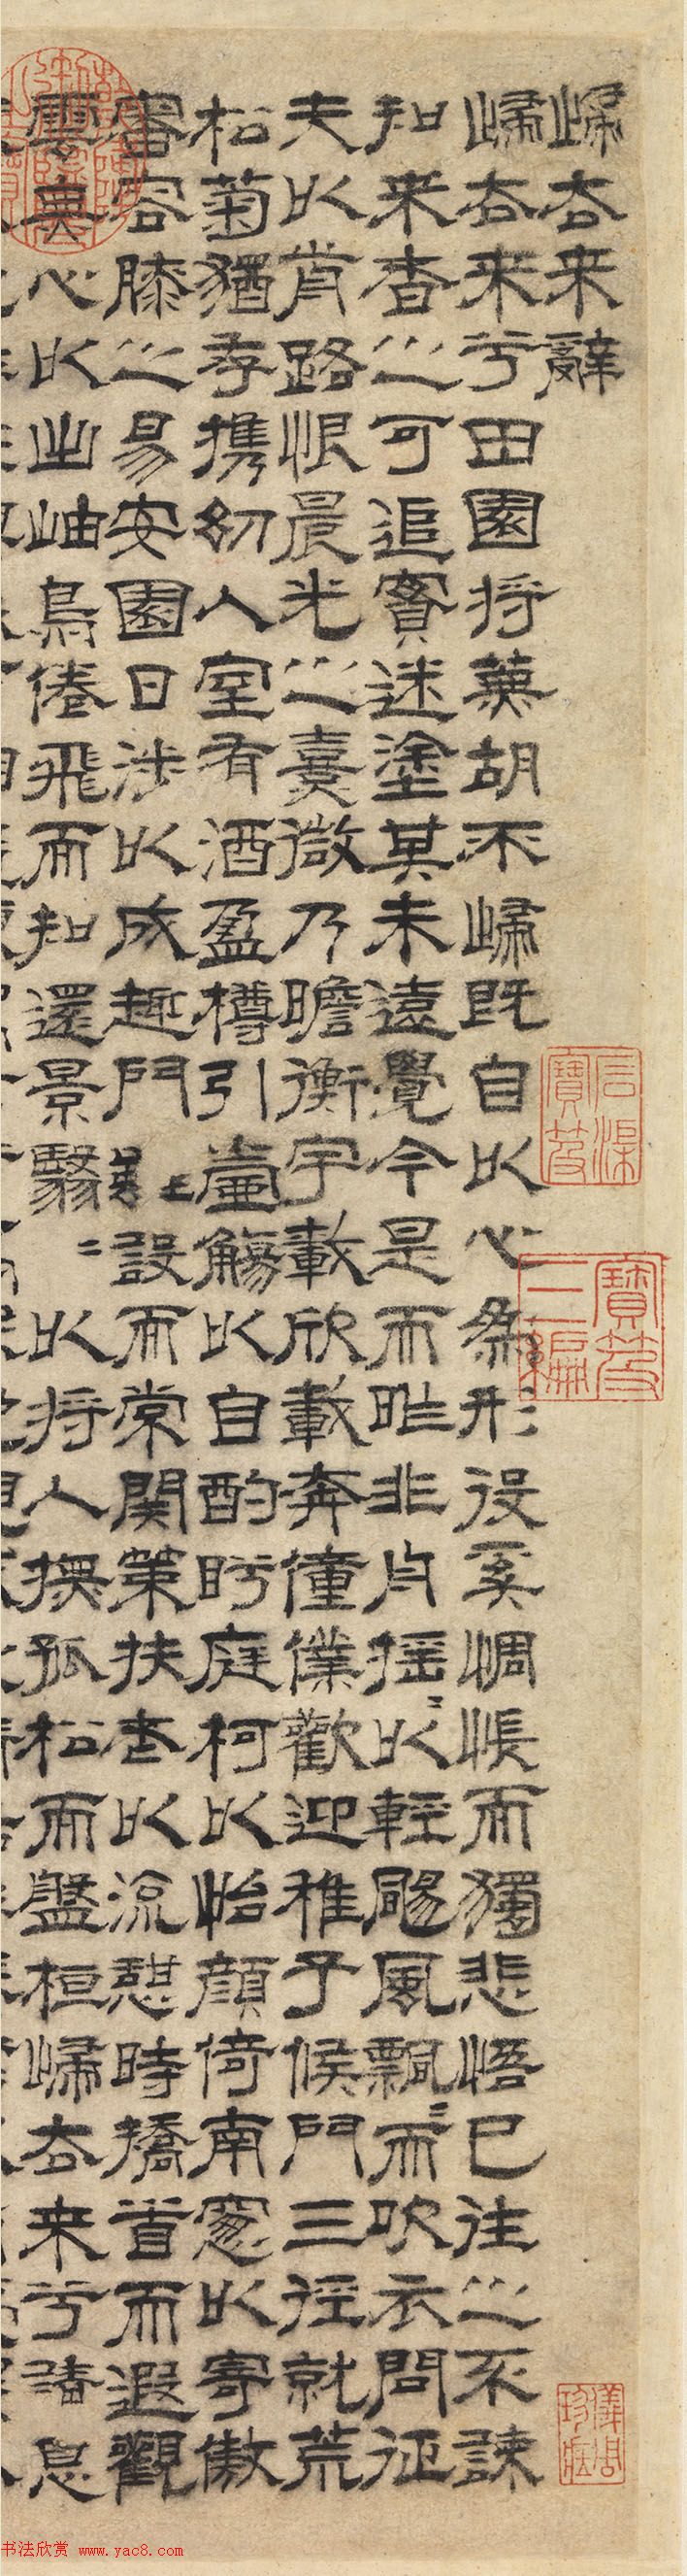 歸去来辭
歸去来兮田園將蕪胡不歸既自以心為形役奚惆悵而獨悲悟已往之不諫
知来者之可追實迷塗其未遠覺今是而昨非舟揺〻以輕颺風飄〻而吹衣問征
夫以前路恨晨光之熹微乃瞻衡宇載欣載奔僮僕歡迎稚子候門三徑就荒
松菊猶存携幼入室有酒盈樽引壺觴以自酌眄庭柯以怡顔倚南窻以寄傲
審容膝之易安園日涉以成趣門雖設而常関策扶老以流憩時撟首而遐觀
雲無心以出岫鳥倦飛而知還景翳〻以將入撫孤松而盤桓歸去来兮請息
石渠寶笈
寶笈三編
儀周珍藏
书法欣赏 www.yac8.com